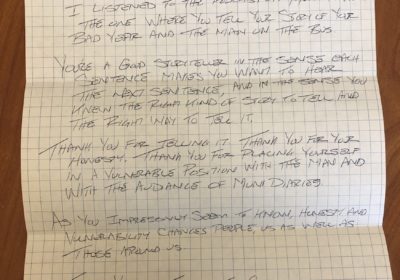 I LISTENED TO THE
THE ONE WHERE YOU TELL YOUR STORY OF YOUR
BAD YEAR AND THE MAN ON THE BUS.
YOU'RE A GOOD STORYTELLER IN THE SENSE EACH
SENTENCE MAKES YOU WANT TO HEAR
THE NEXT SENTENCE, AND IN THE SENSE YOU
KNEW THE RIGHT KIND OF STORY TO TELL AND
THE RIGHT WAY TO TELL IT.
THANK YOU FOR TELLING IT. THANK YOU FOR YOUR
HONESTY. THANK YOU FOR PLACING YOURSELF
IN A VULNERABLE POSITION WITH THE MAN AND
WITH THE AUDIANCE OF MUNI DIARIES.
AS YOU SEEM TO KNOW, HONESTY AND
VULNERABILITY CHANGES PEOPLE, US AS WELL AS
THOSE AROUND US.